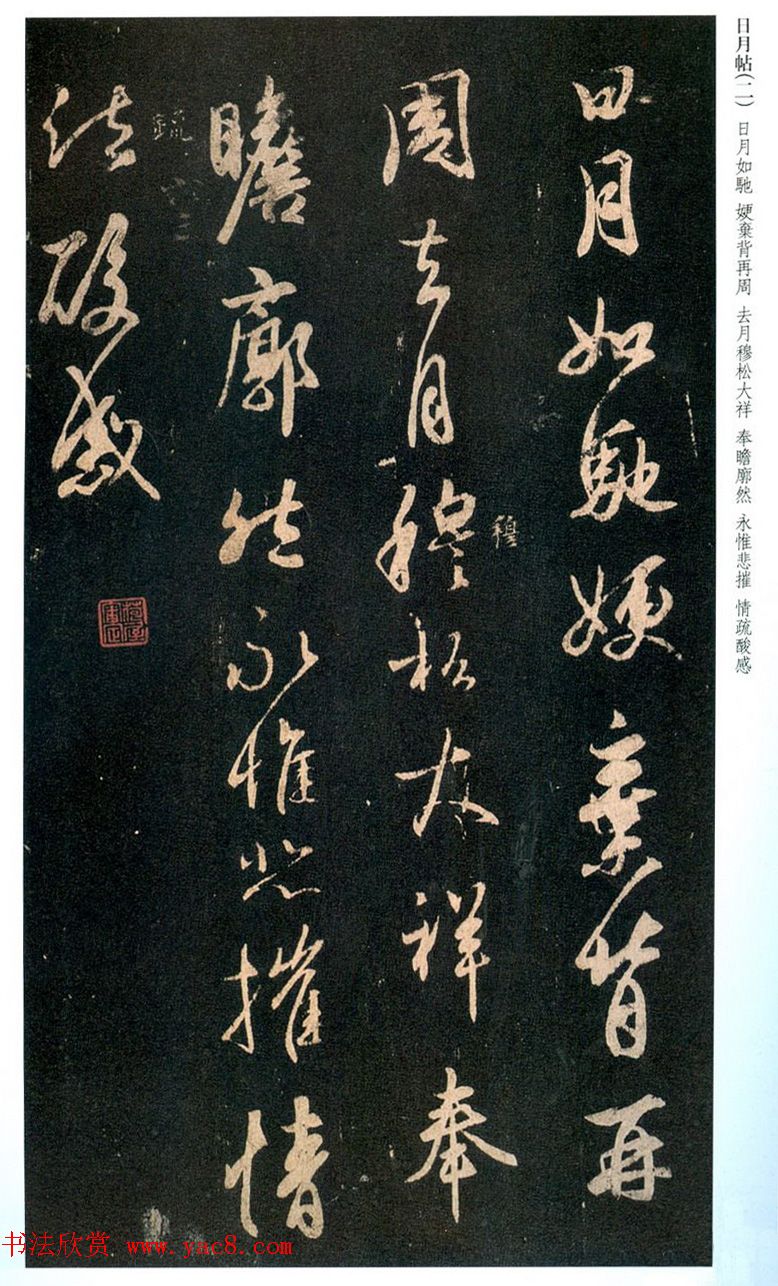 日月帖(二) 日月如馳 㛐棄背再周 去月穆松大祥 奉瞻廓然 永惟悲摧 情疏酸感
日月如馳㛐棄背再
周去月穆松大祥奉
穆
瞻廓然永惟悲摧情
疏
疏酸感
书法欣赏 www.yac8.com